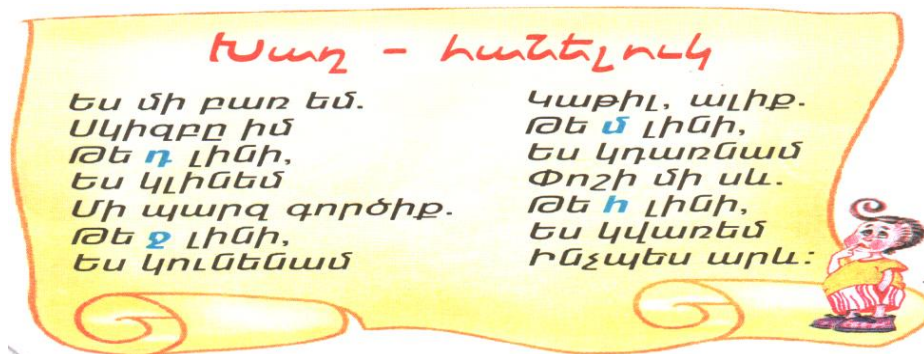 Խաղ - հանելուկ
Ես մի բառ եմ.
Սկիզբը իմ
Թե դ լինի,
Ես կլինեմ
Մի պարզ գործիք.
Թե ջ լինի,
Ես կունենամ
Կաթիլ, ալիք.
Թե մ լինի,
Ես կդառնամ
Փոշի մի սև.
Թե հ լինի,
Ես կվառեմ
Ինչպես արև: